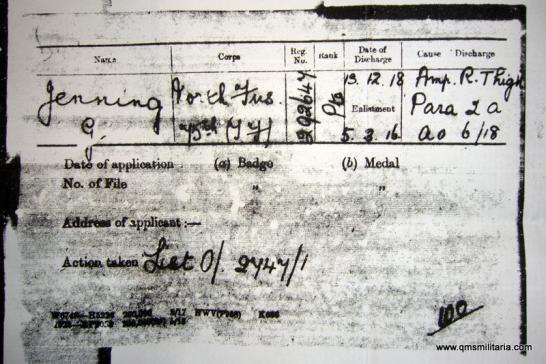 Name Corps Reg. No. Rank Date of Discharge Cause Discharge
Jenning North Fus. Pte 13.12.18 Amp. R. Thigh
Enlistment Para 2 a
G. 5.3.16 ao 6/18
Date of application : (a) Badge (b) Medal
No. of File " "
Address of applicant :—
Action taken List O/ 2747/1
100
www.qmsmilitaria.com